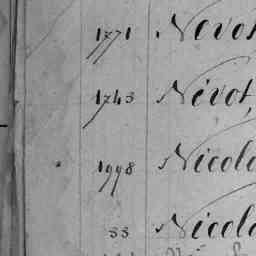 1771 Nevot
1743 Nivot,
1998 Nicola
33 Nicola